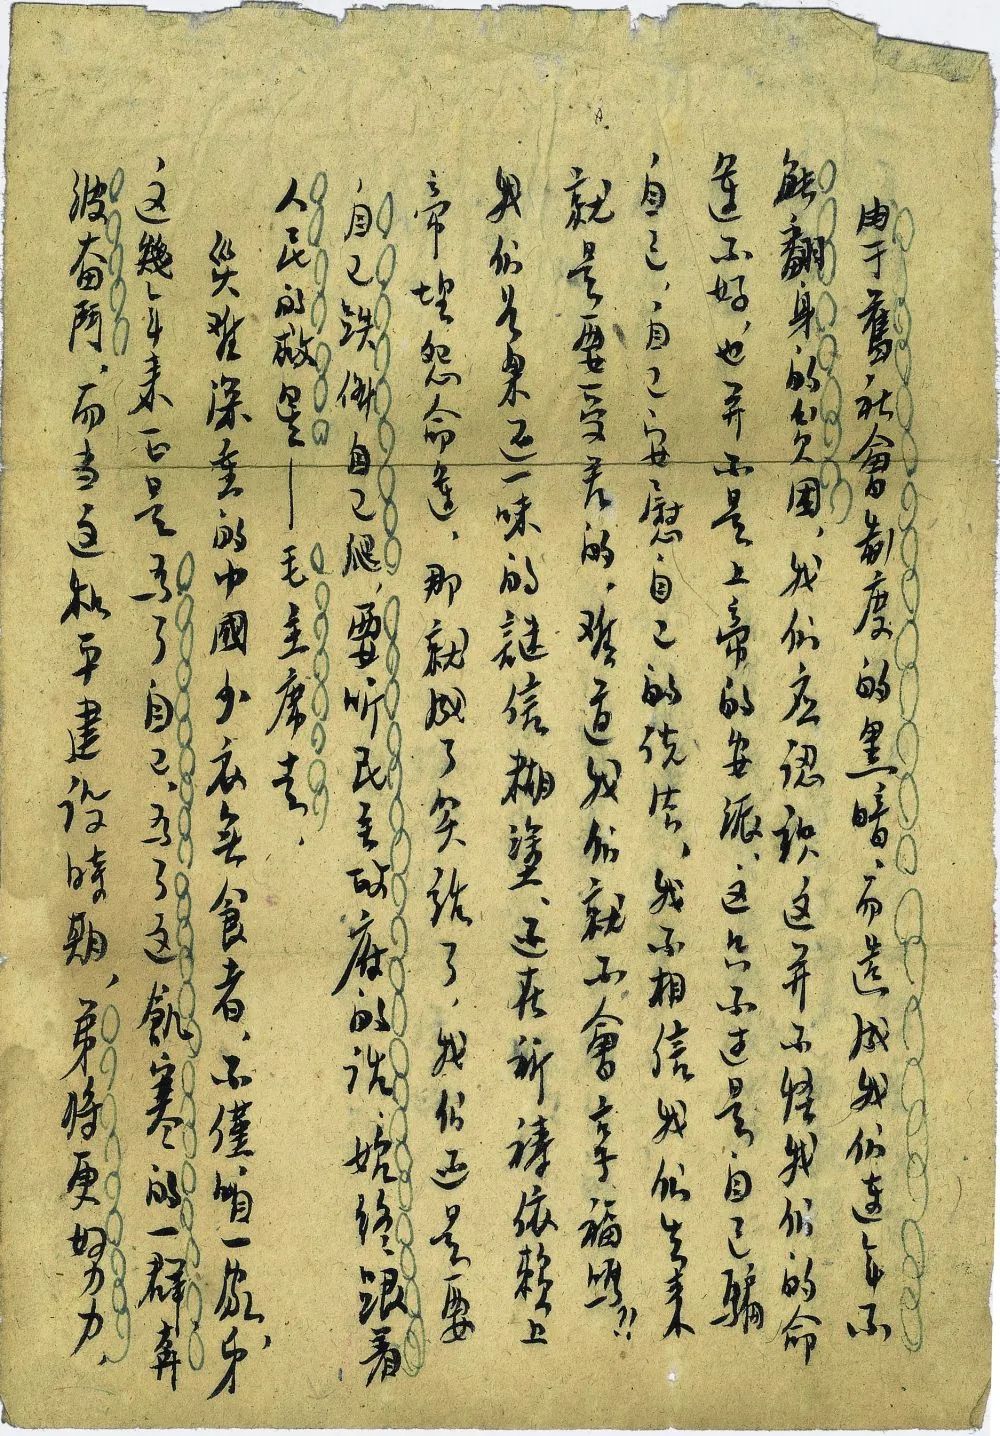 由于舊社會制度的黑暗，而造成我们連年不
能翻身的貧困，我们应認識这并不怪我们的命
運不好，也并不是上帝的安派，这只不过是自己騙
自己，自己安慰自己的說法，我不相信我们生来
就是要受苦的，难道我们就不會享福嗎!!
我们若果还一味的謎信糊塗、还在祈禱依賴上
帝埋怨命運，那就成了笑話了，我们还是要
自己跌倒自己爬，要听民主政府的話，始終跟着
人民的救星——毛主席走，
災难深重的中國少衣無食者，不僅咱一家，弟
这幾年来正是為了自己，為了这飢寒的一群奔
波奋鬥，而当这和平建設時期，弟將更努力，